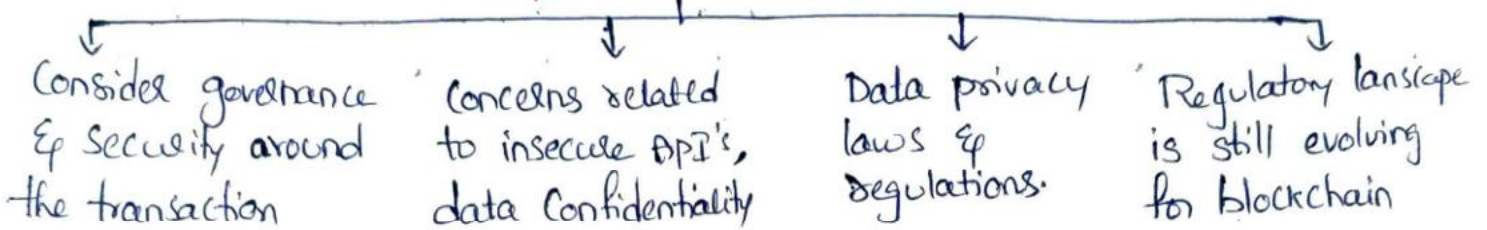 Consider governance
& Security around
the transaction
Concerns related
to insecure API's,
data Confidentiality
Data privacy
laws &
regulations.
Regulatory lansicape
is still evolving
for blockchain